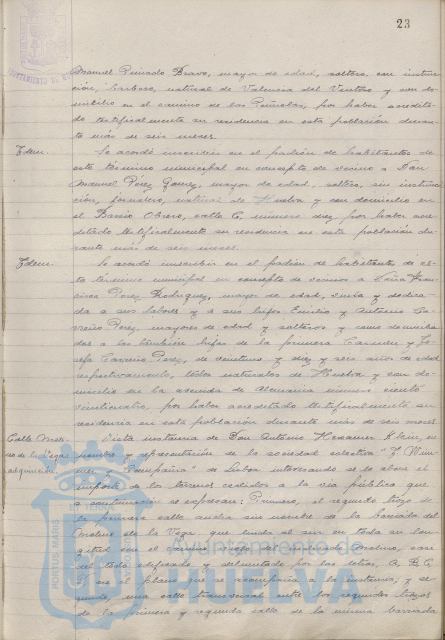 23
Manuel Peinado Bravo, mayor de edad, soltero, con instruc-
ción, barbero, natural de Valencia del Ventoso y con do-
micilio en el camino de las Peñuelas, por haber acredita-
do testificalmente su residencia en esta población duran-
te más de seis meses.
Idem. Se acordó inscribir en el padrón de habitantes de
este término municipal en concepto de vecino a Don
Manuel Perez Gomez, mayor de edad, soltero, sin instruc-
ción, jornalero, natural de Huelva y con domicilio en
el Barrio Obrero, calle C, número diez, por haber acre-
ditado testificalmente su residencia en esta población du-
rante más de seis meses.
Idem. Se acordó inscribir en el padrón de habitantes de es-
te término municipal en concepto de vecinos a Doña Fran-
cisca Perez Rodriguez, mayor de edad, viuda y dedica-
da a sus labores y a sus hijos Emilio y Antonio
Perez, mayores de edad y solteros y como domicilia-
das a las también hijas de la primera Carmen y Jo-
sefa Perez, de veintiuno y diez y seis años de edad
respectivamente, todos naturales de Huelva y con do-
micilio en la avenida de Alemania número ciento
veinticuatro, por haber acreditado testificalmente su
residencia en esta población durante más de seis meses.
Calle Moli-
no de la Vega
adquisición
Vista instancia de Don Antonio en
nombre y representación de la sociedad colectiva "J. Wim-
mer y Compañia" de Lisboa interesando se le abone el
importe de los terrenos cedidos a la vía pública que
a continuación se expresan: Primero, el segundo trozo de
la primera calle ancha sin nombre de la barriada del
Molino de la Vega que linda al sur en toda su lon-
gitud con el campo viejo del citado Molino, casi
del todo edificado y delimitado por las letras, A, B, C,
D en el plano que se acompaña a la instancia, y se-
gundo, una calle transversal entre los segundos trozos
de la primera y segunda calle de la misma barriada
Ayuntamiento de
HUELVA
PORTUS MARIS